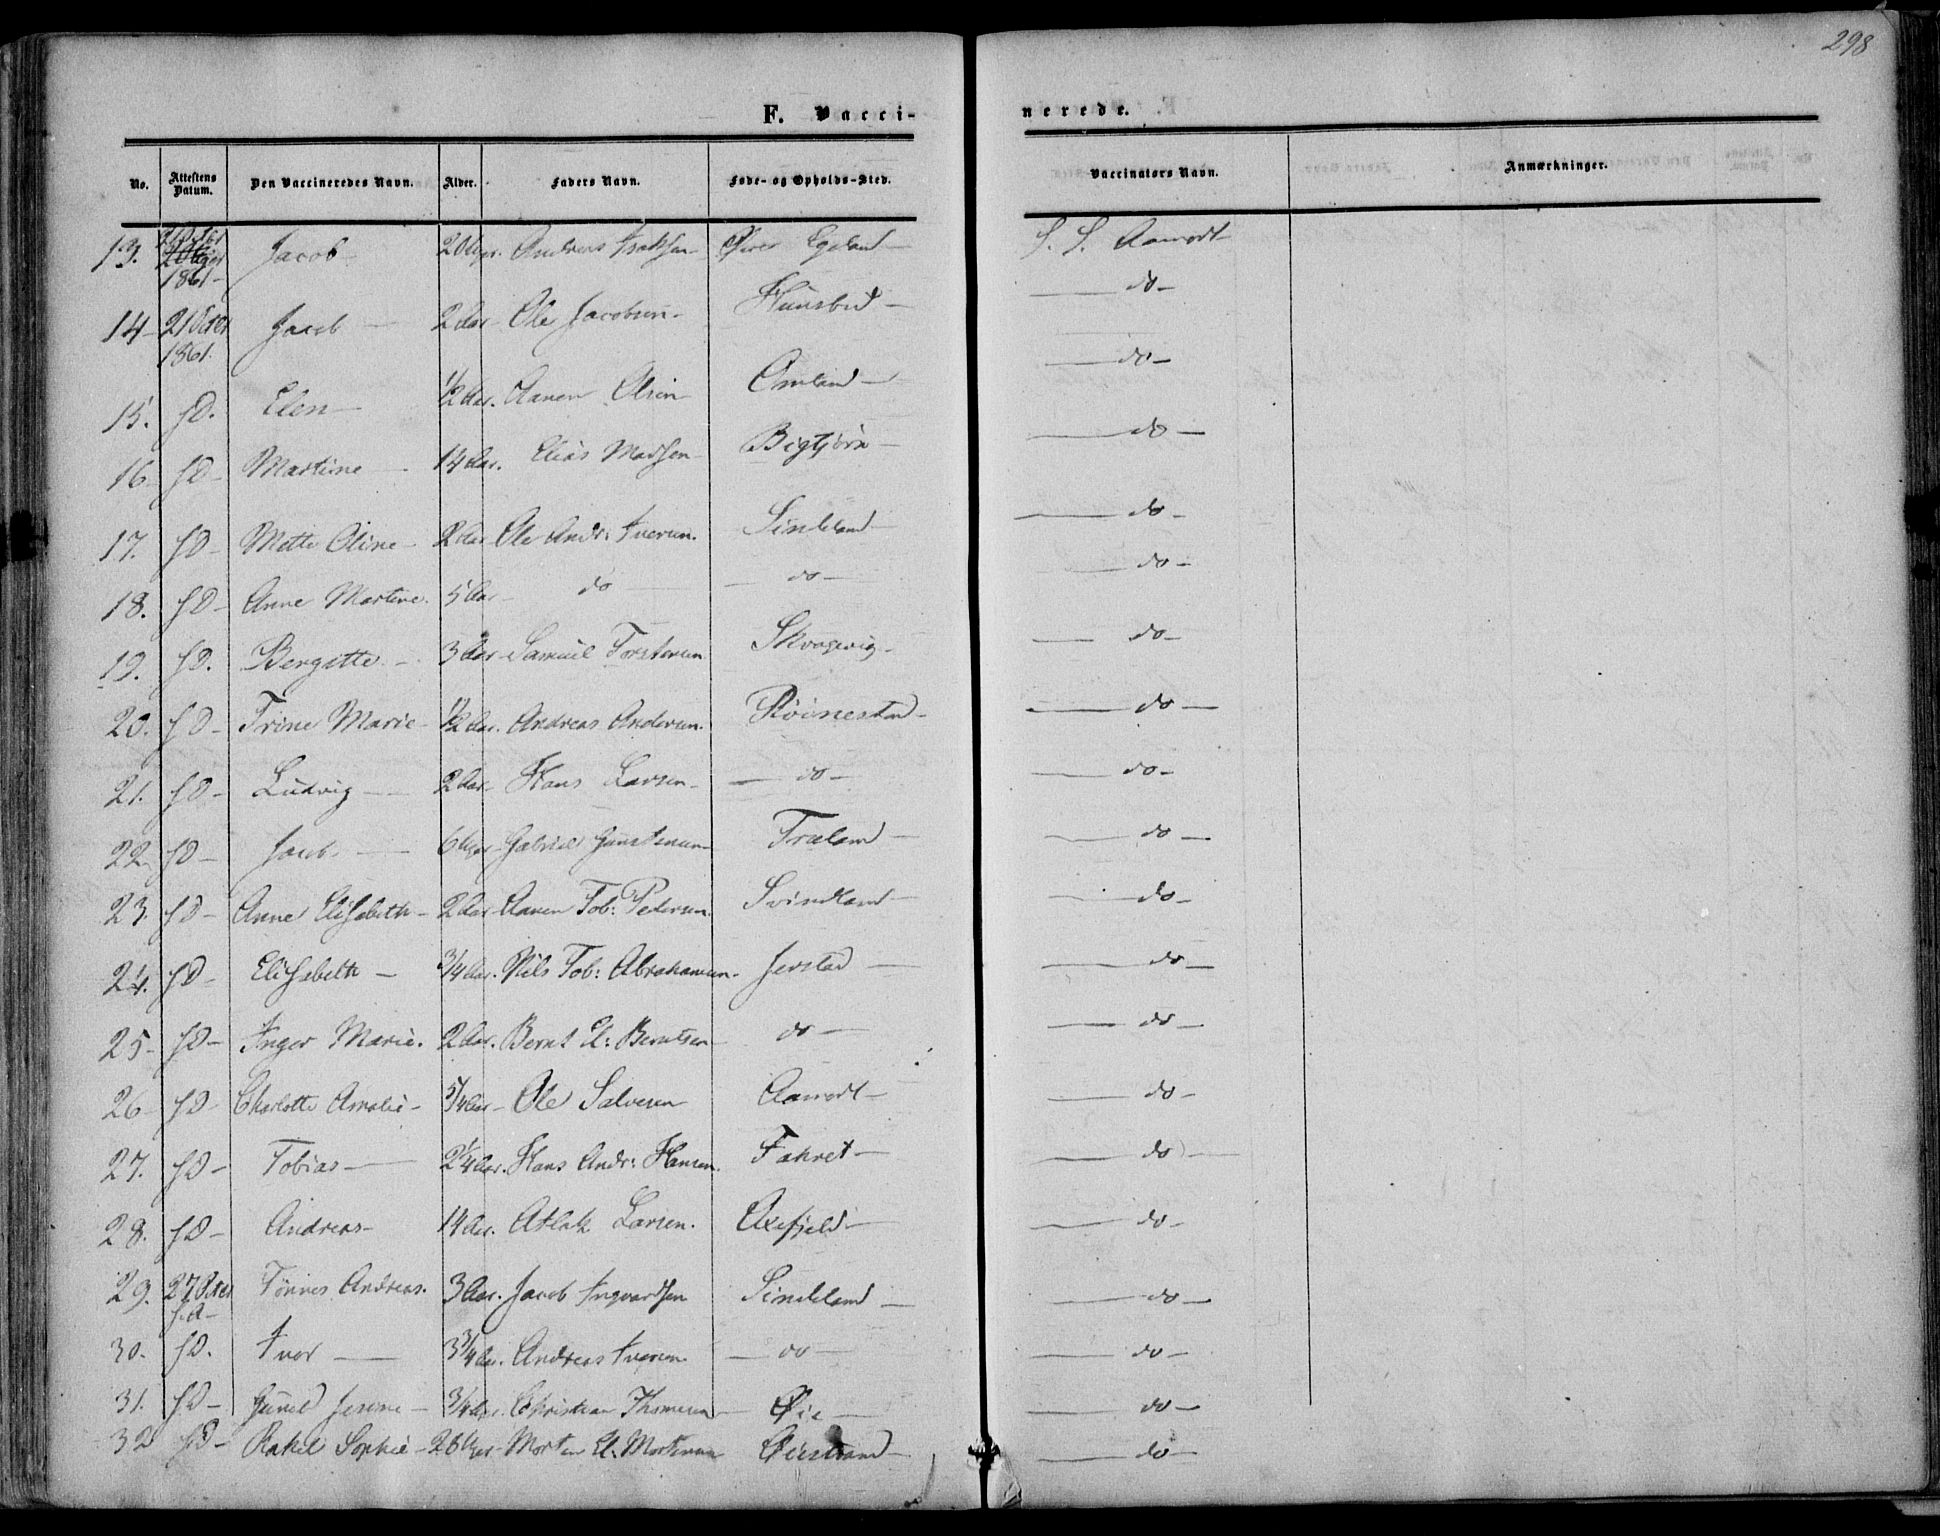 298
F. Vacci- nerede.
No. Attestens Datum. Den Vaccineredes Navn. Alder. Faders Navn. Føde- og Opholds-Sted. Vaccinators Navn. Anmærkninger.
13. 1861- Jacob- Andreas Isaksen- Øvre Egeland- S. S. Aamodt
14- 21 Octer 1861. Jacob - 2 Aar- Ole Jacobsen- do-
15. sD. Elen- 1/2 Aar. Aanen Olsen Omland- do-
16. sD- Martine - 14 Aar. Elias Madsen- Bigtjørn- do-
17. sD- Mette Oline- 2 Aar Ole Andr: Iversen. Sindland- do-
18. sD- Anne Martine. 5 Aar- do - do- do-
19. sD. Bergitte - 3 Aar- Samuel Torstensen do-
20. sD- Trine Marie- 1/2 Aar. Andreas Andersen. Röinestad- do-
21. sD- Ludvig - 2 Aar- Hans Larsen- - do- do-
22. sD- Jacob - Gabriel Træland- do-
23. sD- Anne Elisabeth- 2 Aar- Aanen Tob: Pedersen. Svindland- do-
24. sD- Elisabeth - 3/4 Aar. Nils Tob: Abrahamsen. Jerstad - do-
25- sD- Inger Marie. 2 Aar. Bernt El: Berntsen do- do-
26- sD- Charlotte Amalie- 5/4 Aar- Ole Salvesen Aamodt- do-
27. sD- Tobias- 2 1/4 Aar. Hans Andr: Hansen. do-
28. sD- Andreas- 14 Aar. Atlak Larsen. Axefjeld- do-
29. 27 Octer s.A- Tönnes Andreas. 3 Aar. Jacob Ingvardsen Sindland - do-
30. sD. Iver - 3 3/4 Aar. Andreas Iversen - do- do-
31. sD- Gunild - 3/4 Aar. Christian Thomesen Øie- do-
32 sD- Rakel Sophie- Morten El. Mortensen Øiestrand- do-